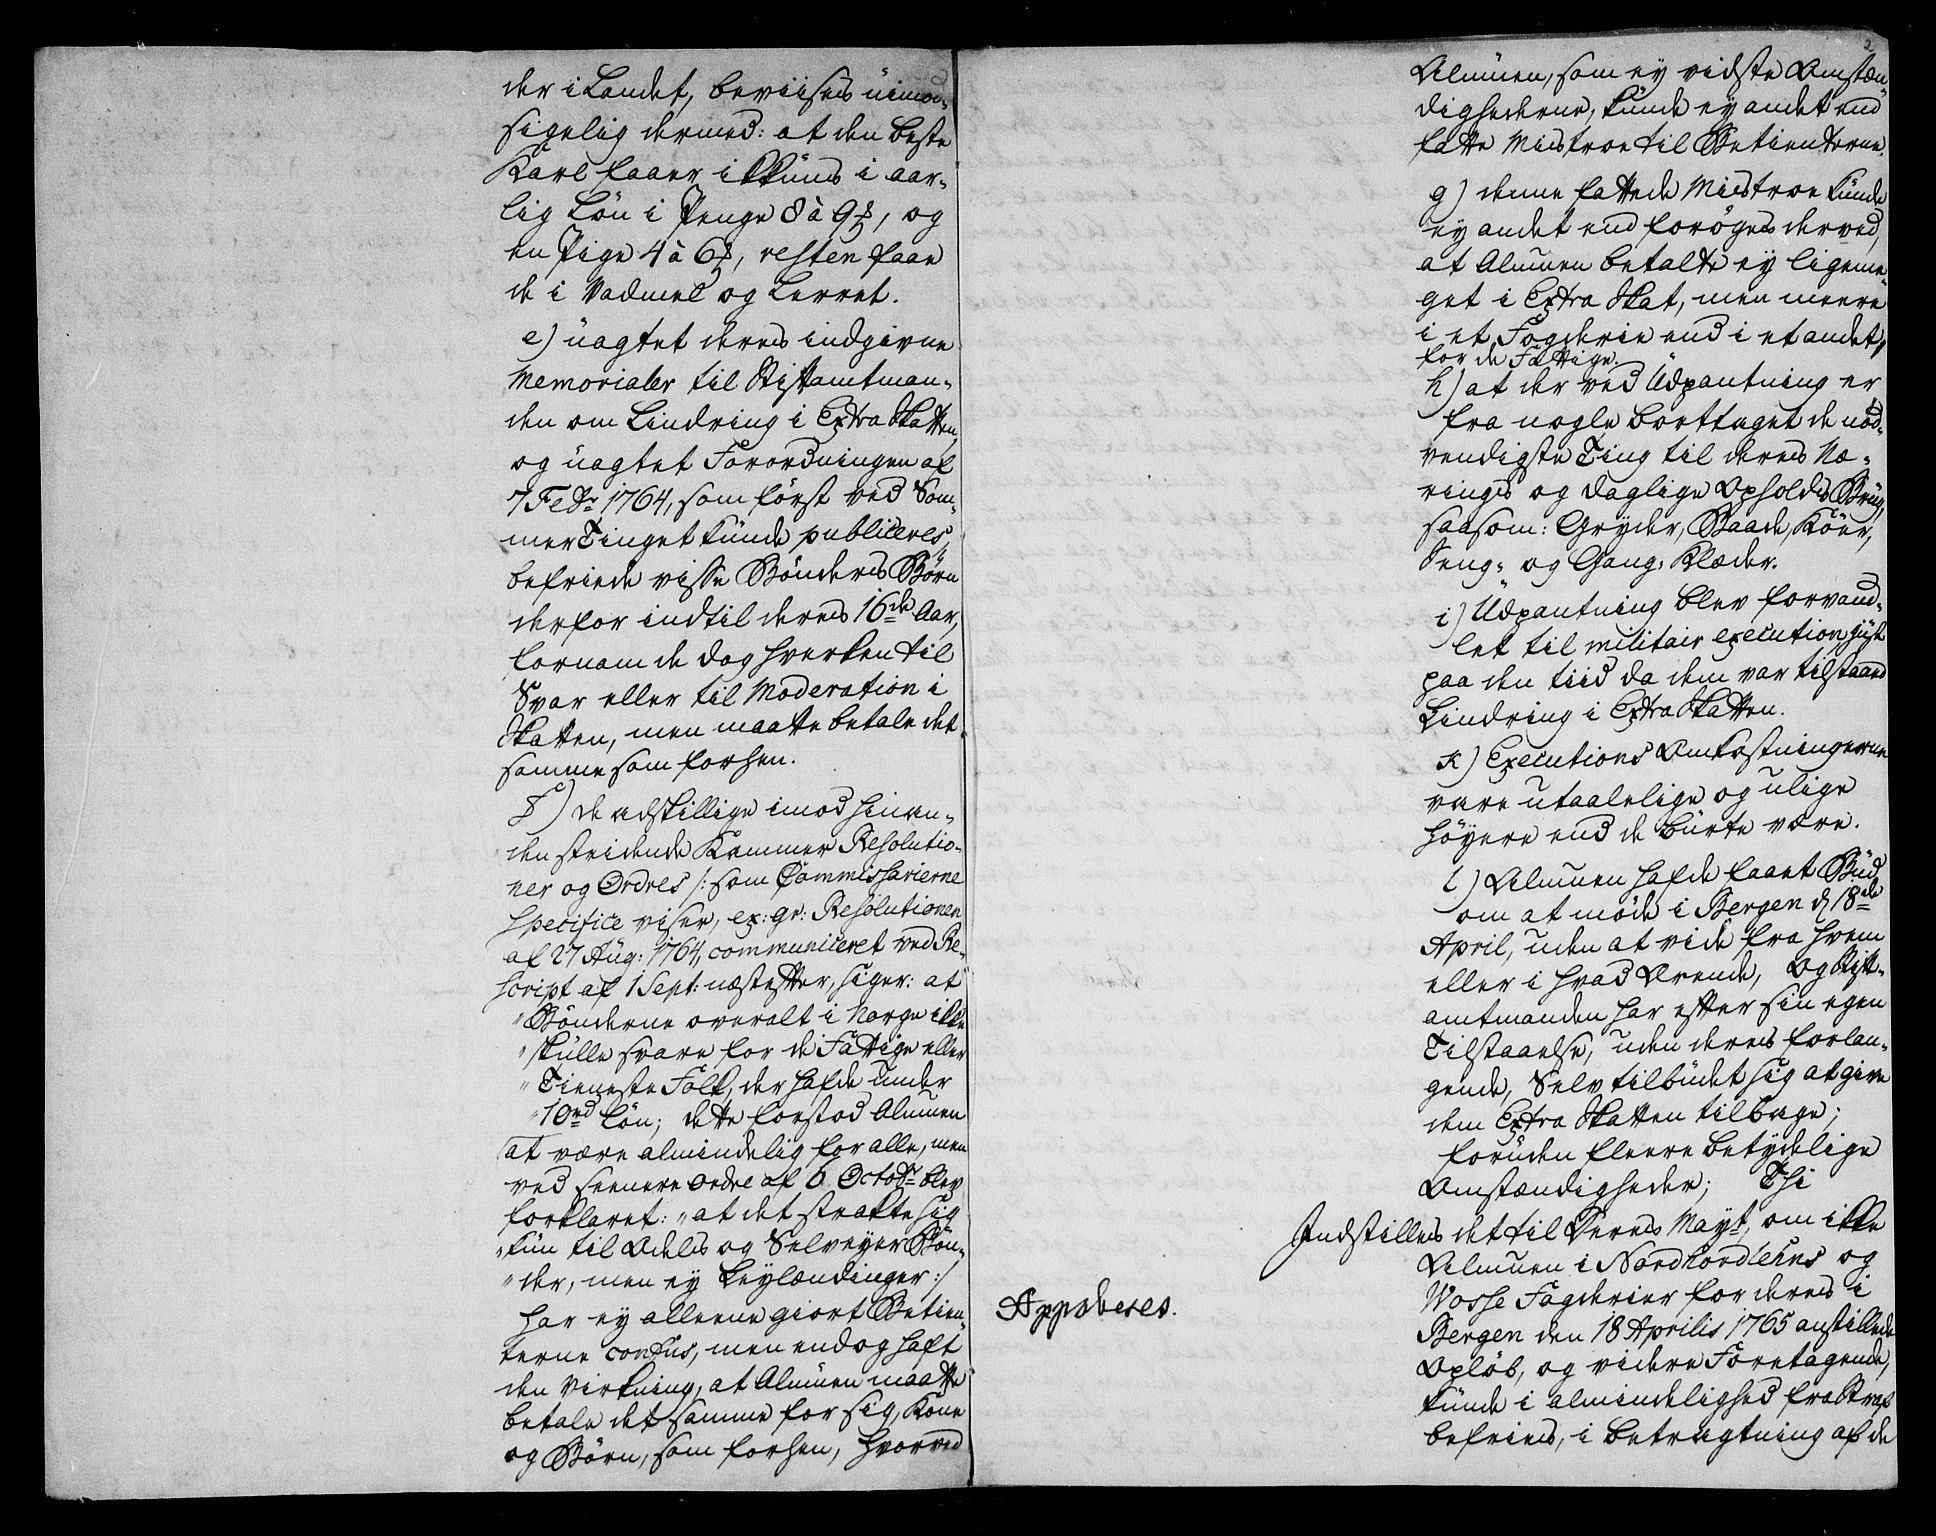 der i Landet, beviises uimod-
sigelig dermed: at den beste
Karl faaer ikkuns i aar-
lig Løn i Penge 8 à 9 rd, og
en Pige 4 à 6 rd, resten faae
de i Vadmel og Lerret.
e) uagtet deres indgivne
Memorialer til Stiftamtman-
den om Lindring i Extra Skatten,
og uagtet Forordningen af
7 Febr. 1764, som først ved Som-
mer Tinget kunde publiceres,
befriede visse Bønders Børn
derfor indtil deres 16de Aar,
fornam de dog hverken til
Svar eller til Moderation i
Skatten, men maatte betale det
samme som forhen.
f) De adskillige imod hinan-
den stridende Kammer Resolutio-
ner og Ordres /: som Commissarierne
specifice viser, ex: gr: Resolutionen
af 27 Aug: 1764, communiceret ved Re-
script af 1 Sept: næstefter, siger: at
"Bønderne overalt i Norge ikke
"skulle svare for de Fattige eller
"Tieneste Folk, der hafde under
"10rd Løn; dette forstod Almuen
at være almindelig for alle, men
ved seenere Ordre af 6 Octobr. blev
forklaret: "at det strakte sig
"kun til Odels og Selveyer Bøn-
"der, men ey Leylændinger :/
har ey alleene giort Betien-
terne confus, men endog haft
den Virkning, at Almuen maatte
betale det samme for sig, Kone
og Børn, som forhen, hvorved
2
Almuen, som ey vidste Omstæn-
dighederne, kunde ey andet end
fatte Mistroe til Betienterne.
g) denne fattede Mistroe kunde
ey andet end forøges derved,
at Almuen betalte ey ligeme-
get i Extra Skat, men meere
i et Fogderie end i et andet,
for de Fattige.
h) at der ved Udpantning er
fra nogle borttaget de nød-
vendigste Ting til deres Næ-
rings og daglige Opholds Brug,
saasom: Gryder, Baade, Köer,
Seng- og Gang-Klæder.
i) Udpantning blev forvand-
let til militair execution just
paa den tiid da dem var tilstaaed
Lindring i Extra Skatten.
k) Executions Omkostningerne
vare utaalelige og ulige
høyere end de burte være.
l) Almuen hafde faaet Bud
om at møde i Bergen d. 18de
April, uden at vide fra hvem
eller i hvad Ærende, og Stift-
amtmanden har efter sin egen
Tilstaaelse, uden deres forlan-
gende, Selv tilbudet sig at give
dem Extra Skatten tilbage;
foruden fleere betydelige
Omstændigheder; Thi
Indstilles det til Deres Mayt., om ikke
Almuen i Nordhordlehns og
Wosse Fogderier for deres i
Bergen den 18 Aprilis 1765 anstillede
Opløb, og videre Foretagende,
kunde i almindelighed fra Straf
befries, i betragtning af de